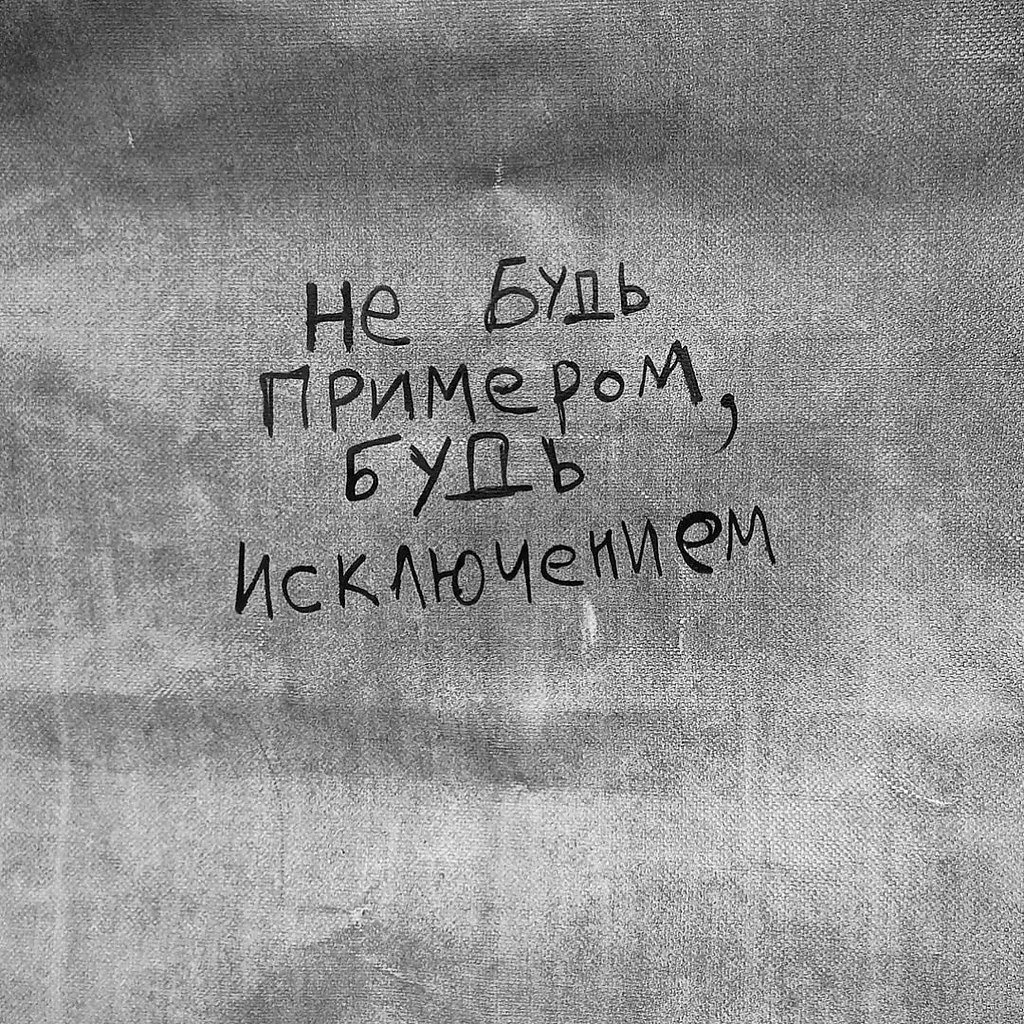 не будь
примером,
будь
исключением